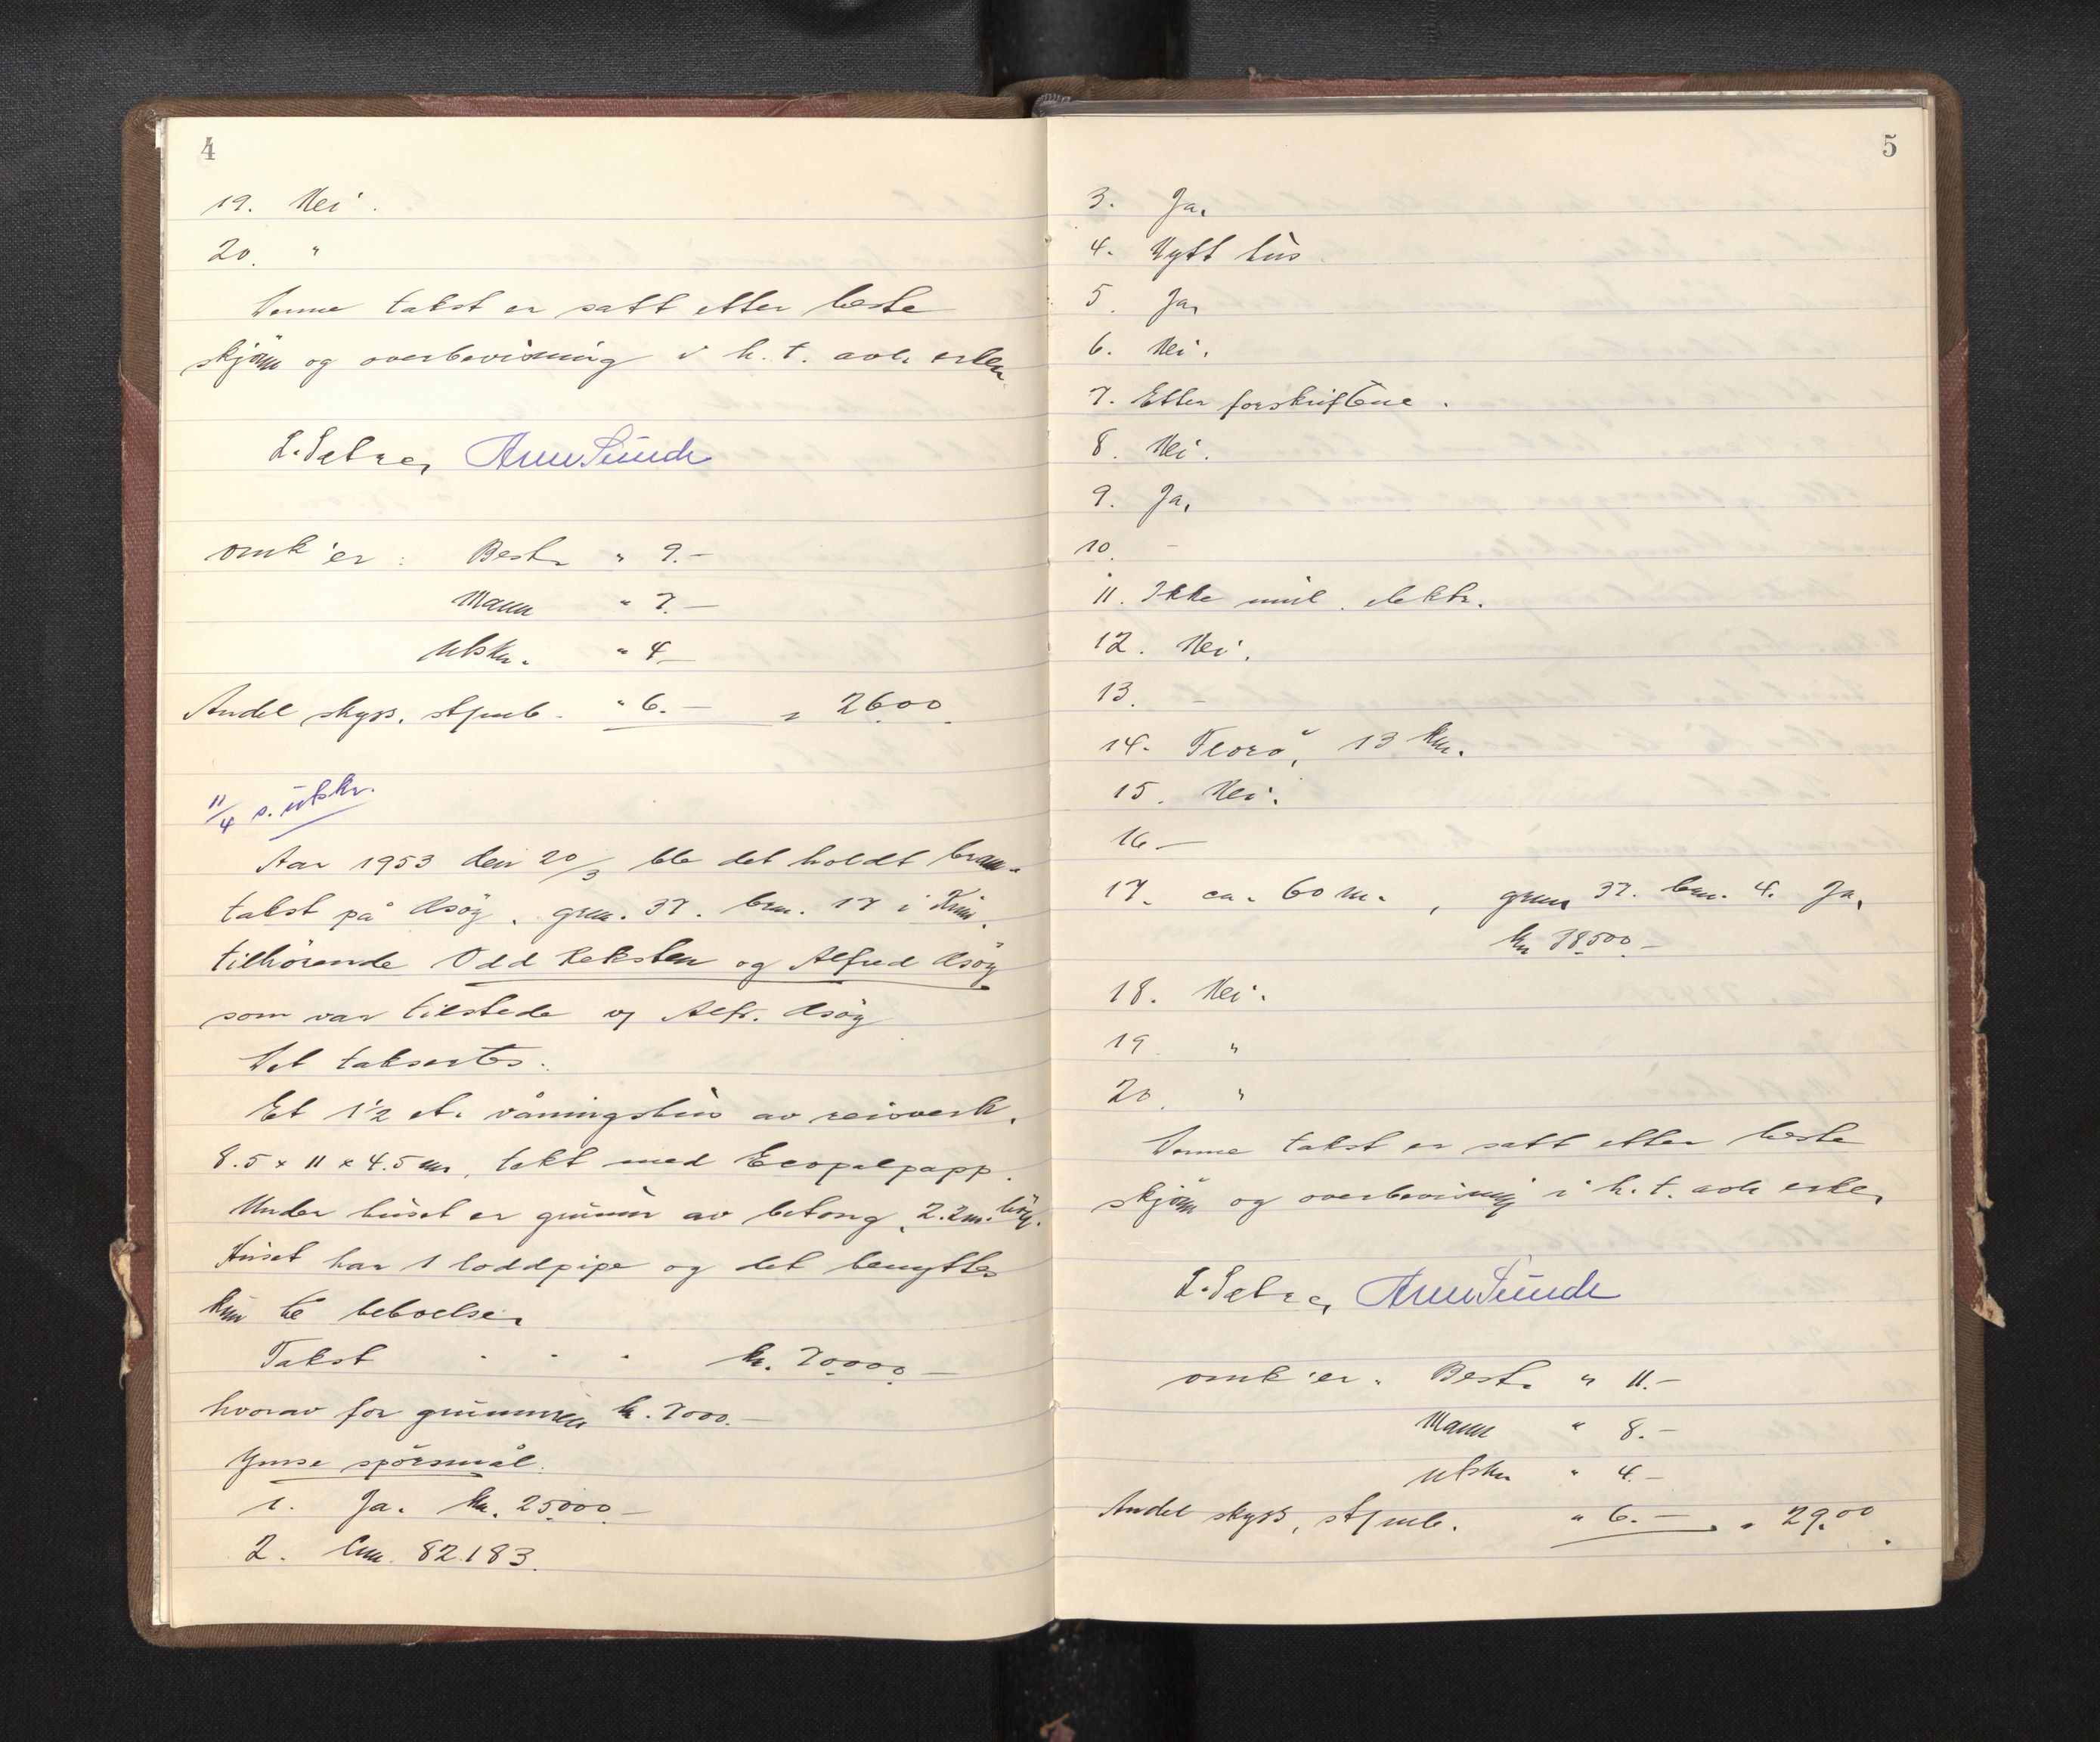 4
19. Nei.
20. "
Denne takst er satt etter beste
skjønn og overbevisning i h. t. avl. erkl.
Arne Sunde
omk'er: Best. " 9.-
Mann " 7.-
Utskr. " 4-
Andel skyss, stpmb. " 6.- = 26.00
11/4 s. utskr.
Aar 1953 den 20/3 ble det holdt brann-
takst på Åsöy. grnr. 37. brn. 17 i Kinn.
tilhörende Odd Reksten og Alfred Åsöy
som var tilstede v/ Alfr. Åsöy
Det taksertes:
Et 1½ et. våningshus av reisverk.
8.5 x 11 x 4.5 m, tekt med Ecopalpapp.
Under huset er grunnmur av betong, 2.2 m. höy.
Huset har 1 loddpipe og det benyttes
kun til beboelse.
Takst . . . kr. 70000.-
hvorav for grunnmuren kr. 7000.-
Ymse spörsmål.
1. Ja. kr. 25000.-
2. Lnr. 82.183.
5
3. Ja.
4. Nytt hus.
5. Ja.
6. Nei.
7. Etter forskriftene.
8. Nei.
9. Ja.
10. -
11. Ikke innl. elektr.
12. Nei.
13. -
14. Florö, 13 km.
15. Nei.
16 -
17. ca. 60 m., grnr. 37. brn. 4. Ja.
kr. 38500.-
18. Nei.
19 "
20. "
Denne takst er satt etter beste
skjönn og overbevisning i h. t. avl. erkl.
Arne Sunde
omk'er. Best. " 11.-
Mann " 8.-
Utskr " 4.-
Andel skyss, stpmb. " 6.- = 29.00